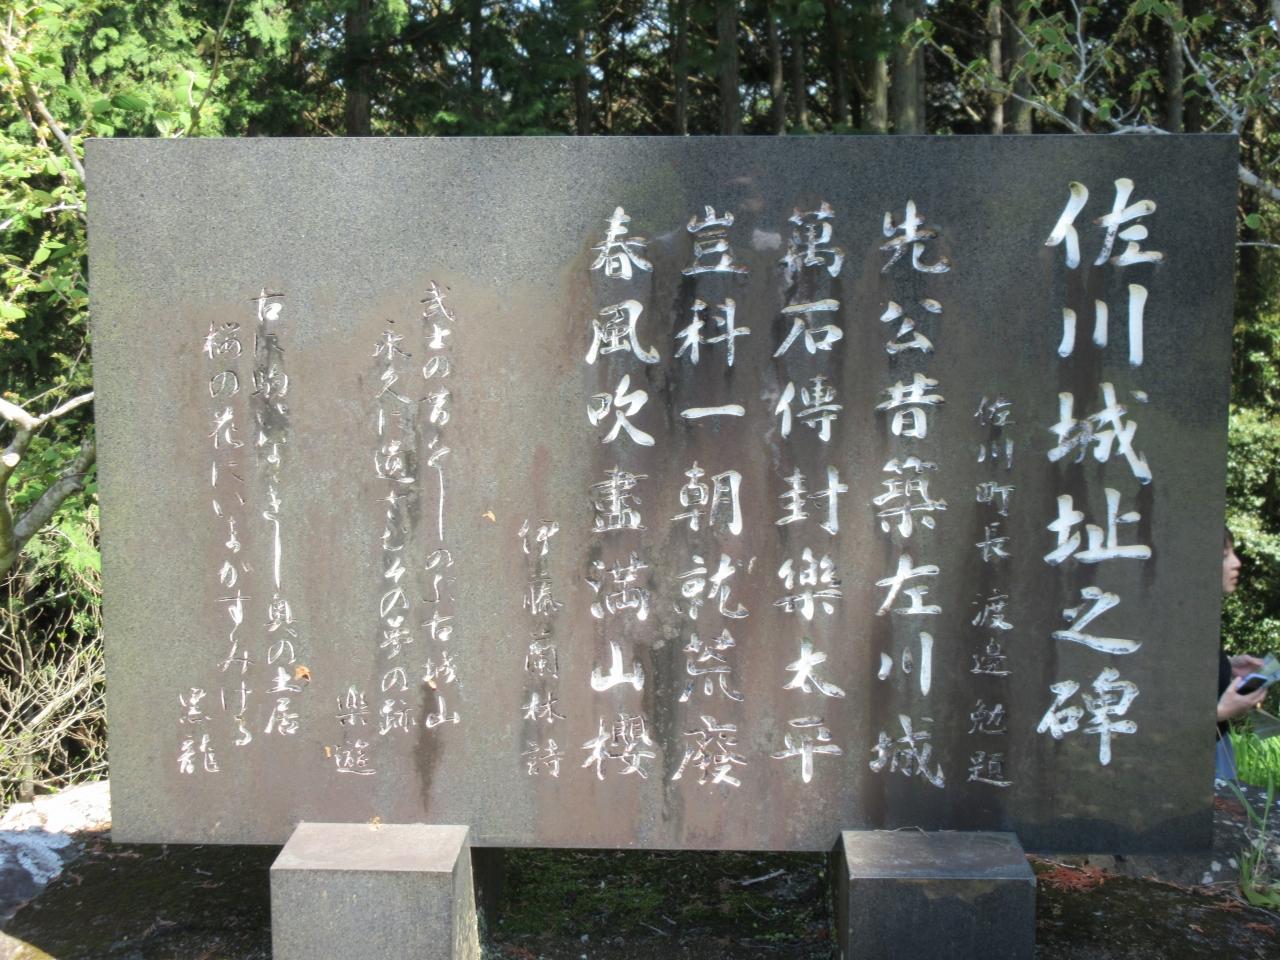 佐川城址之碑
佐川町長 渡邉 勉 題
先公昔築左川城
萬石傳封樂太平
豈科一朝就荒廢
春風吹盡満山櫻
伊藤蘭林詩
武士の昔をしのぶ古城山
永久に遺すもその夢の跡
樂遊
古に駒なきし奥の土居
桜の花にいまがすみける
黒龍